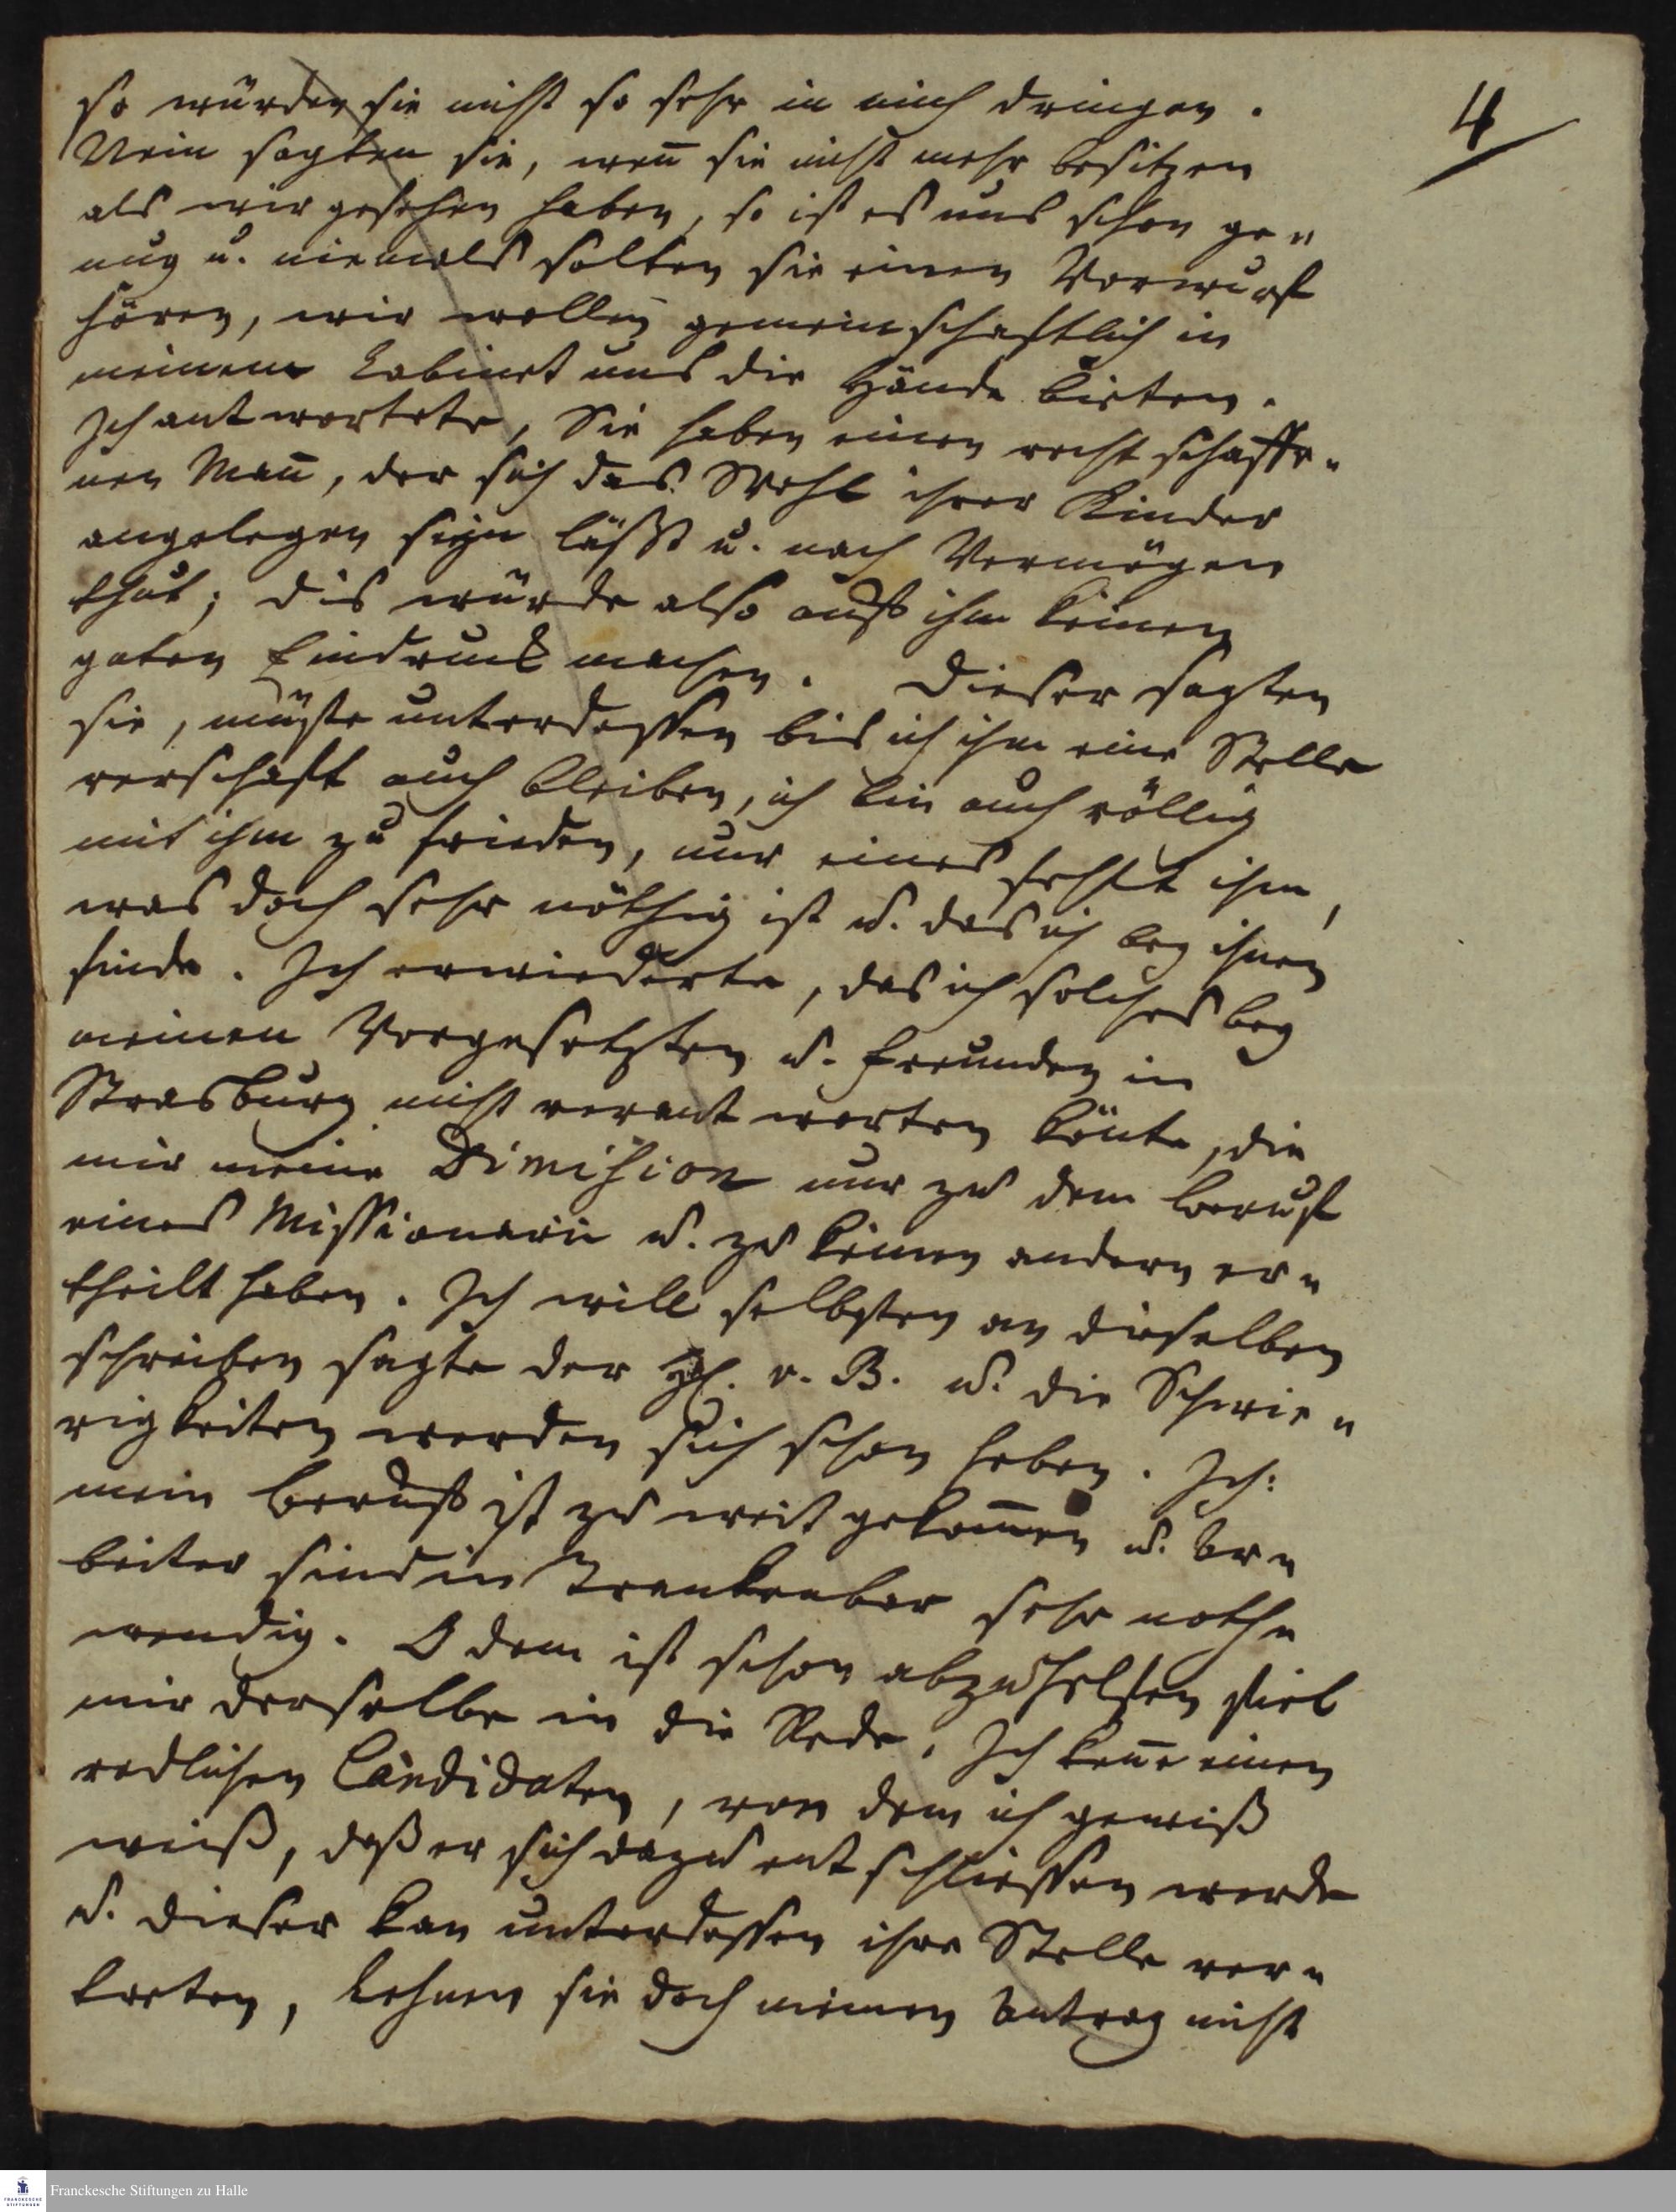 4
so würden sie nicht so sehr in mich dringen.
Nein sagten sie, wen̄ sie nicht mehr besitzen
als wir gesehen haben, so ist es uns schon ge„
nug u. niemals solten sie einen Vorwurf
hören, wir wollen gemeinschaftlich in
meinem Cabinet uns die Hände bieten.
Ich antwortete, Sie haben einen rechtschaffe„
nen Man̄, der sich das Wohl ihrer Kinder
angelegen seyn läßt u. nach Vermögen
thut; dis würde also auf ihm keinen
guten Eindruck machen. Dieser sagten
sie, müste unterdessen bis ich ihm eine Stelle
verschaft auch bleiben, ich bin auch völlig
mit ihm zu frieden, nur eines fehlt ihm,
was doch sehr nöthig ist u. das ich bey ihnen
finde. Ich erwiederte, das ich solches bey
meinen Vorgesetzten u. Freunden in
Strasburg nicht verantworten könte, die
mir meine Dimission nur zu dem Beruf
eines Missionarii u. zu keinen andern er„
theilt haben. Ich will selbsten an dieselben
schreiben sagte der H. v. B. u. die Schwie„
rigkeiten werden sich schon heben. Ich:
mein Beruf ist zu weit gekom̄en u. Ar„
beiter sind in Trankenbar sehr noth„
wendig. O dem ist schon abzuhelfen fiel
mir derselbe in die Rede. Ich ken̄e einen
redlichen Candidaten, von dem ich gewiß
weiß, daß er sich dazu entschliessen werde
u. dieser kan unterdessen ihre Stelle ver„
treten, Lehnen sie doch meinen Antrag nicht
Franckesche Stiftungen zu Halle